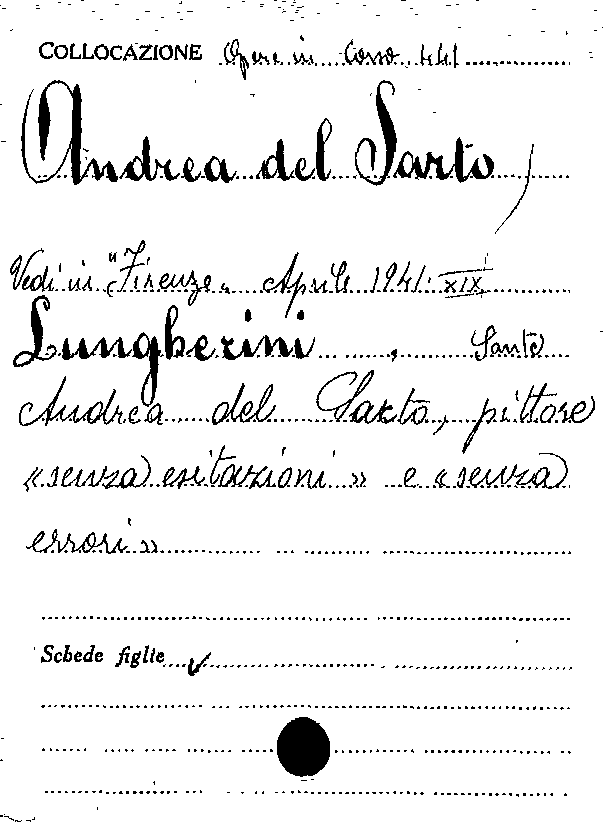 COLLOCAZIONE Opere in Corso 441
Andrea del Sarto
Vedi in "Firenze" Aprile 1941. XIX
Lungherini, Sante
Andrea del Sarto, pittore
«senza esitazioni» e «senza
errori»
Schede figlie